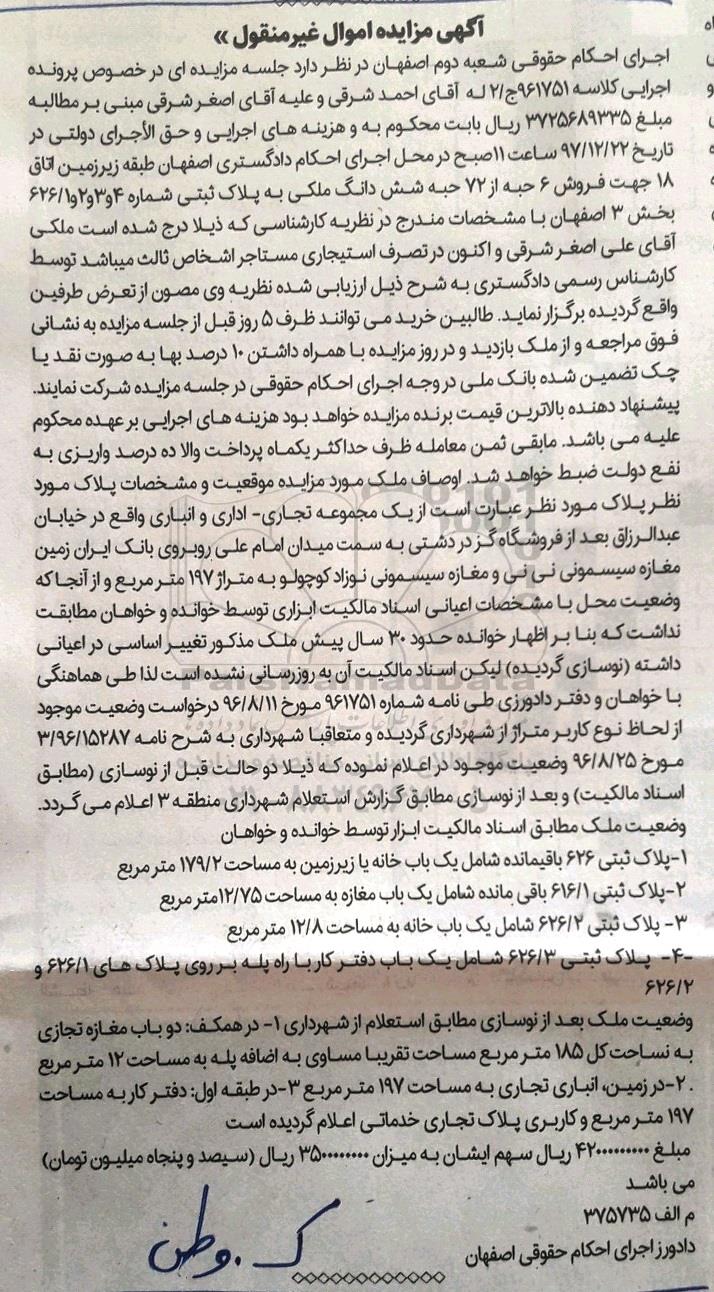 آگهی مزایده اموال غیرمنقول »
اجرای احکام حقوقی شعبه دوم اصفهان در نظر دارد جلسه مزایده ای در خصوص پرونده
اجرایی کلاسه ۹۶۱۷۵۱ج/۲ له آقای احمد شرقی و علیه آقای اصغر شرقی مبنی بر مطالبه
مبلغ ۳۷۲۵۶۸۹۳۳۵ ریال بابت محکوم به و هزینه های اجرایی و حق الأجرای دولتی در
تاریخ ۹۷/۱۲/۲۲ ساعت ۱۱صبح در محل اجرای احکام دادگستری اصفهان طبقه زیرزمین اتاق
۱۸ جهت فروش ۶ حبه از ۷۲ حبه شش دانگ ملکی به پلاک ثبتی شماره ۴و۳و۲و۶۲۶/۱
بخش ۳ اصفهان با مشخصات مندرج در نظریه کارشناسی که ذیلا درج شده است ملکی
آقای علی اصغر شرقی و اکنون در تصرف استیجاری مستاجر اشخاص ثالث میباشد توسط
کارشناس رسمی دادگستری به شرح ذیل ارزیابی شده نظریه وی مصون از تعرض طرفین
واقع گردیده برگزار نماید. طالبین خرید می توانند ظرف ۵ روز قبل از جلسه مزایده به نشانی
فوق مراجعه و از ملک بازدید و در روز مزایده با همراه داشتن ۱۰ درصد بها به صورت نقد یا
چک تضمین شده بانک ملی در وجه اجرای احکام حقوقی در جلسه مزایده شرکت نمایند.
پیشنهاد دهنده بالاترین قیمت برنده مزایده خواهد بود هزینه های اجرایی بر عهده محکوم
علیه می باشد. مابقی ثمن معامله ظرف حداکثر یکماه پرداخت والا ده درصد واریزی به
نفع دولت ضبط خواهد شد. اوصاف ملک مورد مزایده موقعیت و مشخصات پلاک مورد
نظر پلاک مورد نظر عبارت است از یک مجموعه تجاری- اداری و انباری واقع در خیابان
عبدالرزاق بعد از فروشگاه گز در دشتی به سمت میدان امام علی روبروی بانک ایران زمین
مغازه سیسمونی نی نی و مغازه سیسمونی نوزاد کوچولو به متراژ ۱۹۷ متر مربع و از آنجا که
وضعیت محل با مشخصات اعیانی اسناد مالکیت ابزاری توسط خوانده و خواهان مطابقت
نداشت که بنا بر اظهار خوانده حدود ۳۰ سال پیش ملک مذکور تغییر اساسی در اعیانی
داشته (نوسازی گردیده) لیکن اسناد مالکیت آن به روزرسانی نشده است لذا طی هماهنگی
با خواهان و دفتر دادورزی طی نامه شماره ۹۶۱۷۵۱ مورخ ۹۶/۸/۱۱ درخواست وضعیت موجود
از لحاظ نوع کاربر متراژ از شهرداری گردیده و متعاقبا شهرداری به شرح نامه ۳/۹۶/۱۵۲۸۷
مورخ ۹۶/۸/۲۵ وضعیت موجود در اعلام نموده که ذیلا دو حالت قبل از نوسازی (مطابق
اسناد مالکیت) و بعد از نوسازی مطابق گزارش استعلام شهرداری منطقه ۳ اعلام می گردد.
وضعیت ملک مطابق اسناد مالکیت ابزار توسط خوانده و خواهان
۱-پلاک ثبتی ۶۲۶ باقیمانده شامل یک باب خانه یا زیرزمین به مساحت ۱۷۹/۲ متر مربع
۲-پلاک ثبتی ۶۱۶/۱ باقی مانده شامل یک باب مغازه به مساحت ۱۲/۷۵متر مربع
۳- پلاک ثبتی ۶۲۶/۲ شامل یک باب خانه به مساحت ۱۲/۸ متر مربع
-۴- پلاک ثبتی ۶۲۶/۳ شامل یک باب دفتر کار با راه پله بر روی پلاک های ۶۲۶/۱ و
۶۲۶/۲
وضعیت ملک بعد از نوسازی مطابق استعلام از شهرداری ۱- در همکف: دو باب مغازه تجازی
به نساحت کل ۱۸۵ متر مربع مساحت تقریبا مساوی به اضافه پله به مساحت ۱۲ متر مربع
. ۲-در زمین، انباری تجاری به مساحت ۱۹۷ متر مربع ۳-در طبقه اول: دفتر کار به مساحت
۱۹۷ متر مربع و کاربری پلاک تجاری خدماتی اعلام گردیده است
مبلغ ۴۲۰۰۰۰۰۰۰۰۰ ریال سهم ایشان به میزان ۳۵۰۰۰۰۰۰۰۰ ریال (سیصد و پنجاه میلیون تومان)
می باشد
م الف ۳۷۵۷۳۵
دادورز اجرای احکام حقوقی اصفهان
ک. وطن